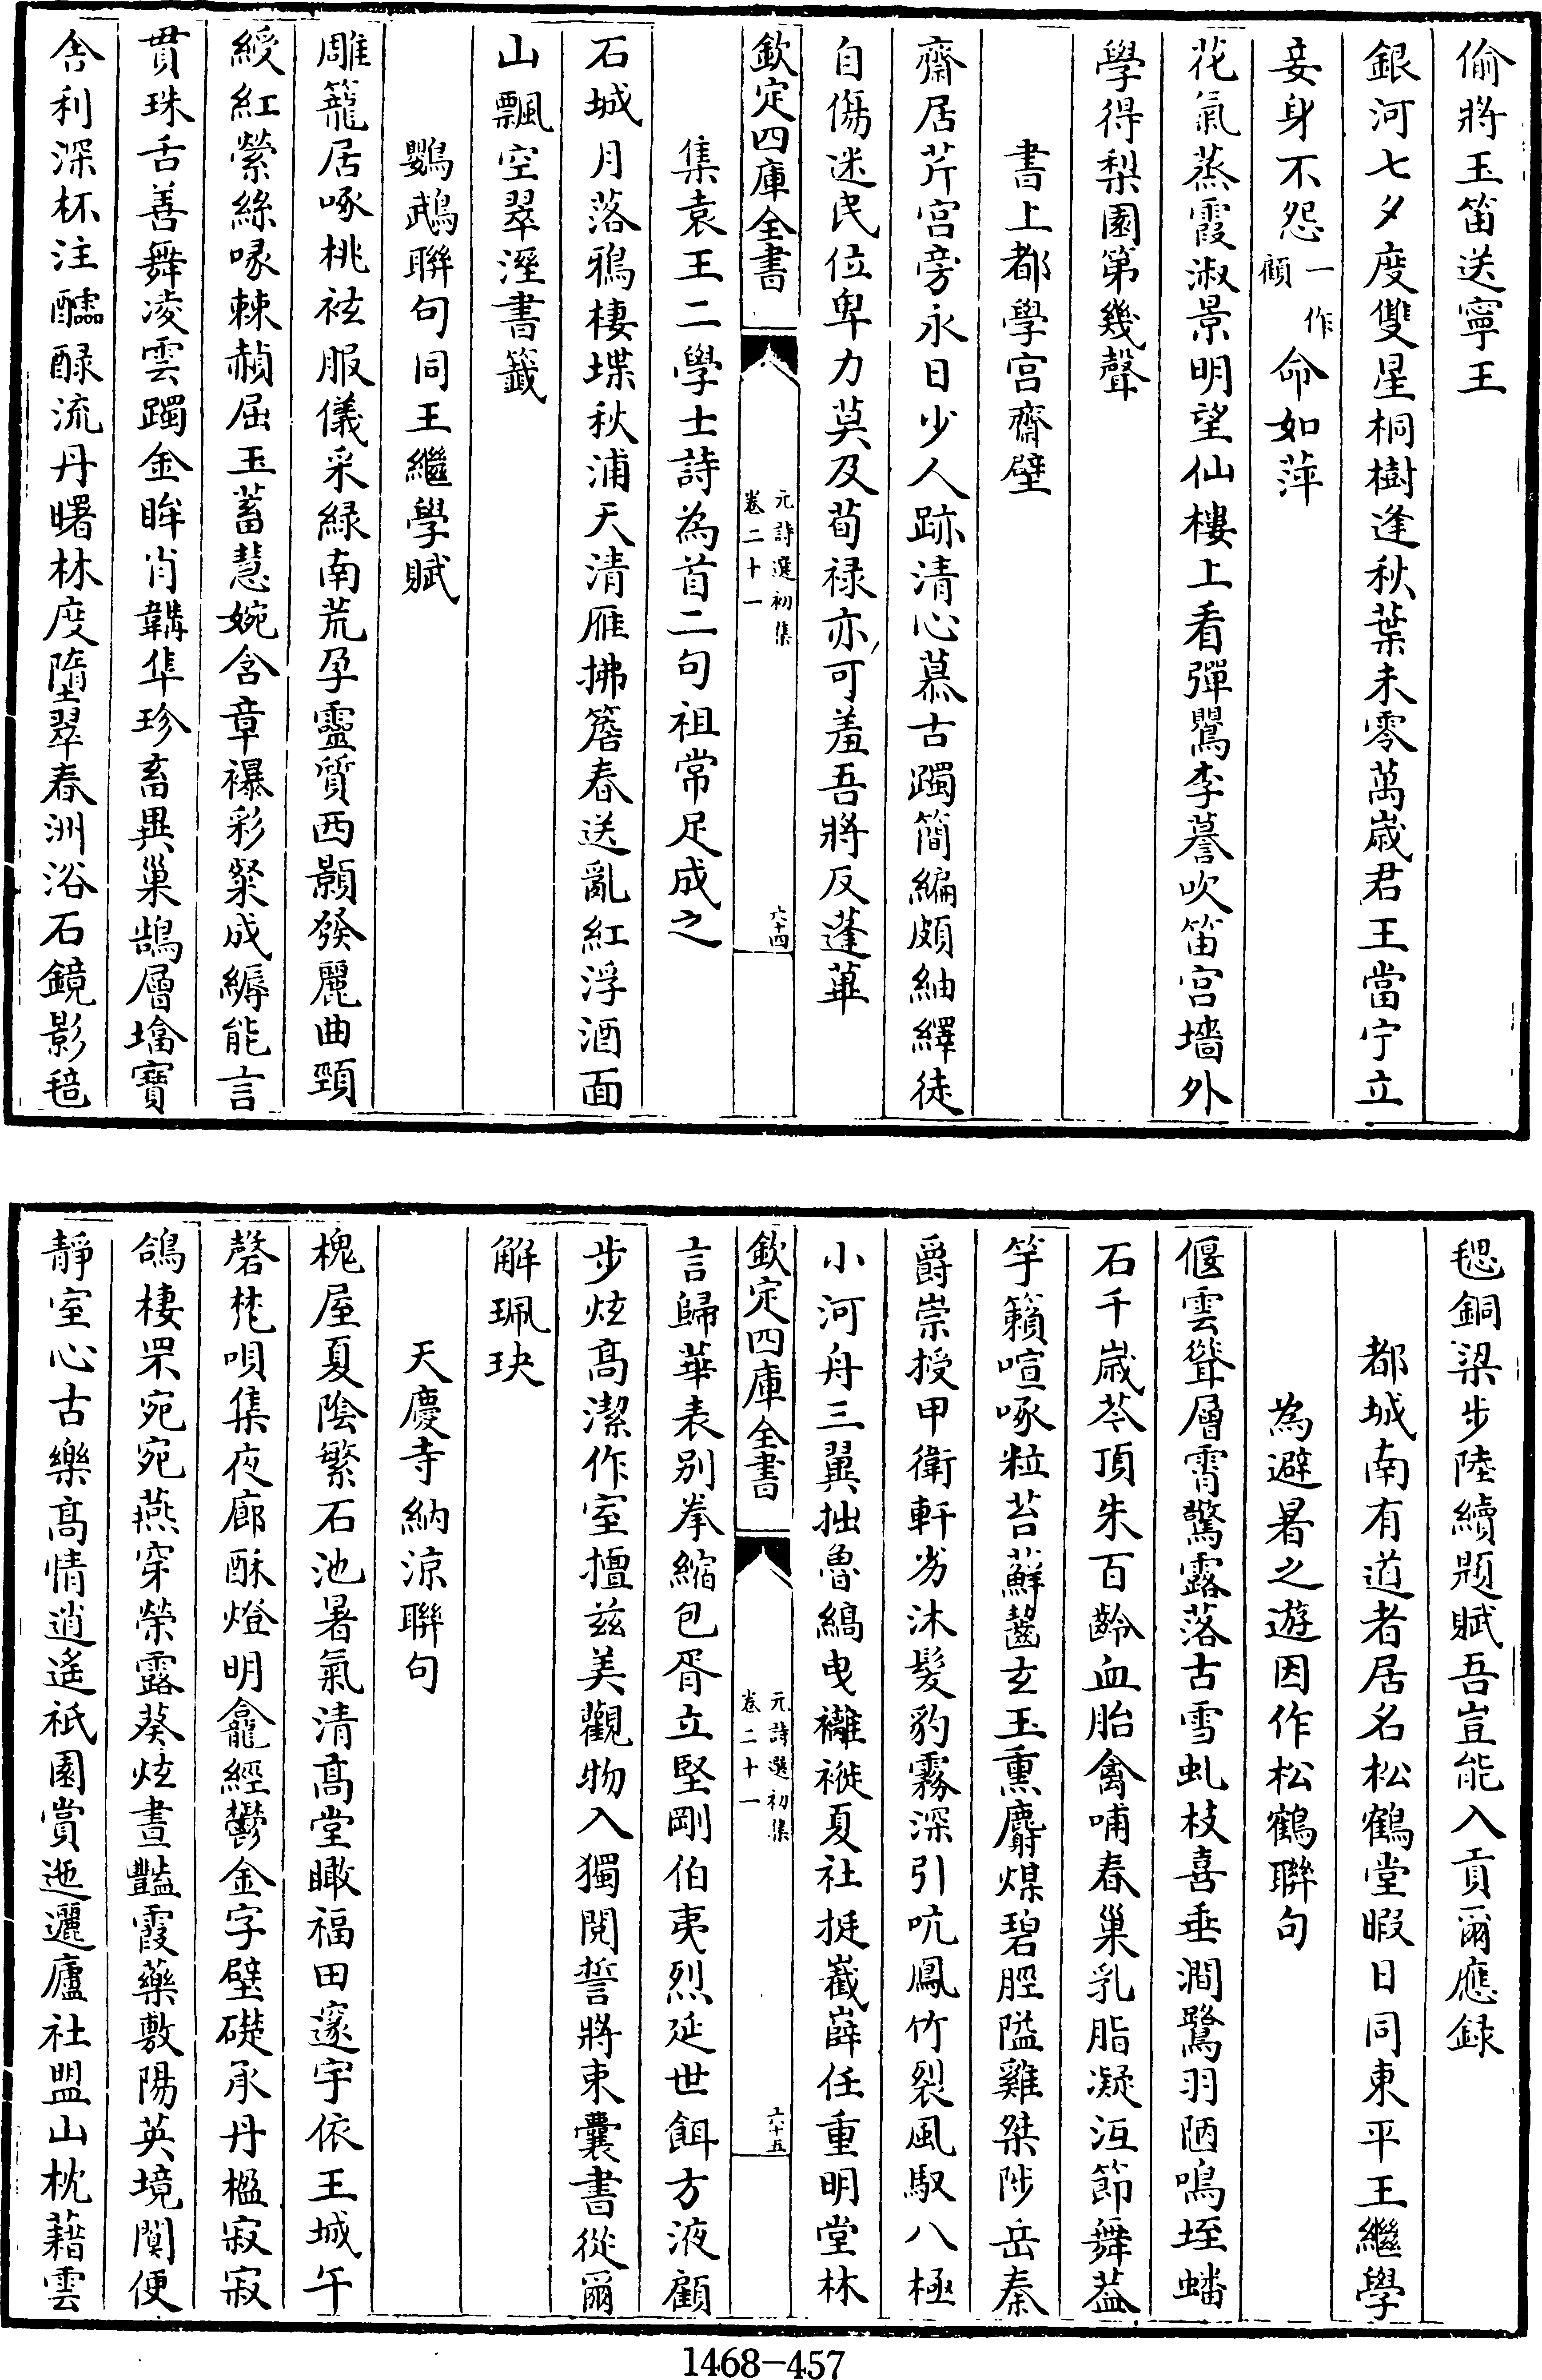 偷將玉笛送寧王
銀河七夕度雙星桐樹逢秋葉未零萬歲君王當宁立
妾身不怨一作顧命如萍
花氣蒸霞淑景明望仙樓上看彈鸎李謩吹笛宮墻外
學得梨園第幾聲
書上都學宮齋壁
齋居芹宮旁永日少人跡清心慕古躅簡編頗紬繹徒
自傷迷民位卑力莫及苟祿亦可羞吾將反蓬蓽
欽定四庫全書
元詩選初集
卷二十一
六十四
集袁王二學士詩為首二句祖常足成之
石城月落鴉棲堞秋浦天清雁拂簷春送亂紅浮酒面
山飄空翠溼書籤
鸚鵡聯句同王繼學賦
雕籠居啄桃祛服儀采綠南荒孕靈質西顥發麗曲頸
綬紅縈絲喙棘赬屈玉蓄慧婉含章襮彩粲成縟能言
貫珠舌善舞凌雲躅金眸肖韝隼珍畜異巢鵠層墖寶
舍利深杯注醽醁流丹曙林度墮翠春洲浴石鏡影㲚
毸銅梁步陸續題賦吾豈能入貢爾應録
都城南有道者居名松鶴堂暇日同東平王繼學
為避暑之遊因作松鶴聯句
偃雲聳層霄驚露落古雪虬枝喜垂澗鷺羽陋鳴垤蟠
石千歲苓頂朱百齡血胎禽哺春巢乳脂凝沍節舞葢
竽籟喧啄粒苔蘚齧玄玉熏麝煤碧脛隘雞桀陟岳秦
爵崇授甲衛軒劣沐髮豹霧深引吭鳳竹裂風馭八極
小河舟三翼拙魯縞曳襳褷夏社挺嶻嶭任重明堂林
欽定四庫全書
元詩選初集
卷二十一
六十五
言歸華表别拳縮包胥立堅剛伯夷烈延世餌方液顧
步炫高潔作室擅兹美觀物入獨閱誓將束囊書從爾
解珮玦
天慶寺納涼聯句
槐屋夏陰繁石池暑氣清高堂瞰福田邃宇依王城午
磬梵唄集夜廊酥燈明龕經鬱金字壁礎承丹楹寂寂
鴿棲罘宛宛燕穿榮露葵炫晝豔霞藥敷陽英境闃便
靜室心古樂高情逍遙祇園賞迤邐廬社盟山枕藉雲
1468-457